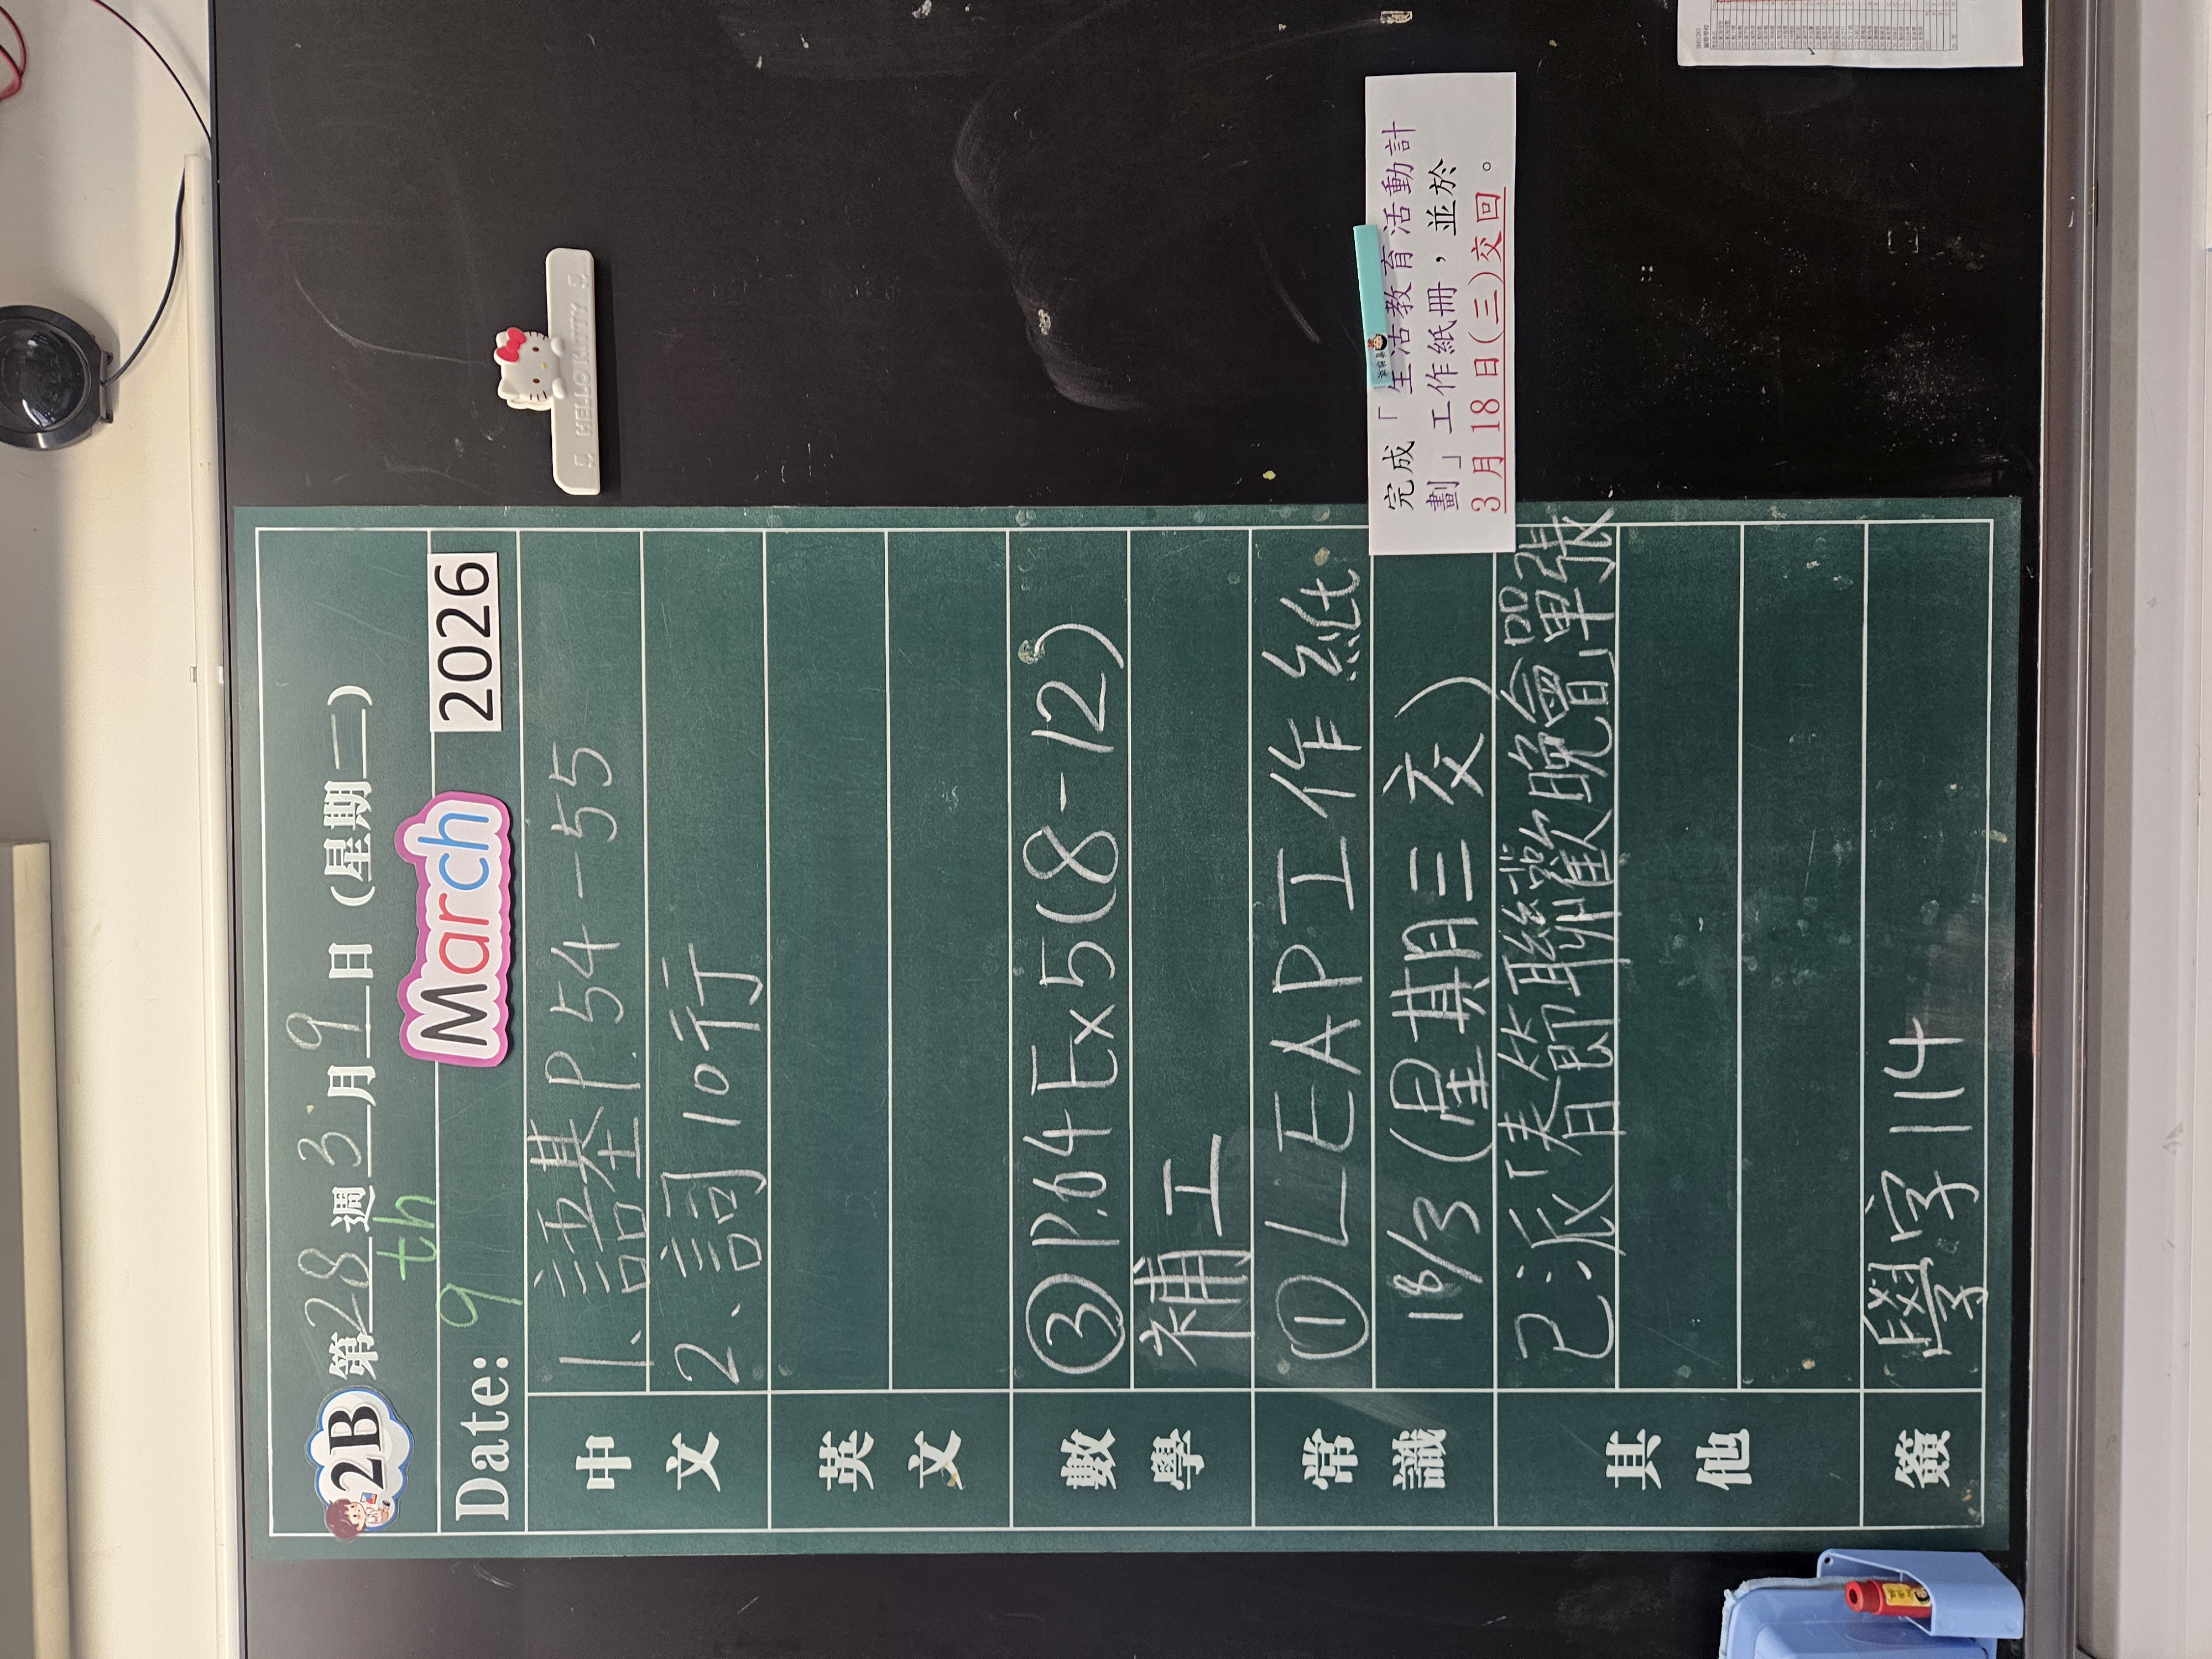 2B 第28週3月9日 (星期二)
Date: 9th March 2026
中文
1、語基P.54-55
2、詞10行
英文
數學
③P.64Ex5(8-12)
補工
常識
①LEAP工作紙
18/3(星期三交)
其他
已派「春節聯歡晚會」單張
簽
學字114
完成「生活教育活動計
劃」工作紙冊，並於
3月18日(三)交回。
HELLO KITTY